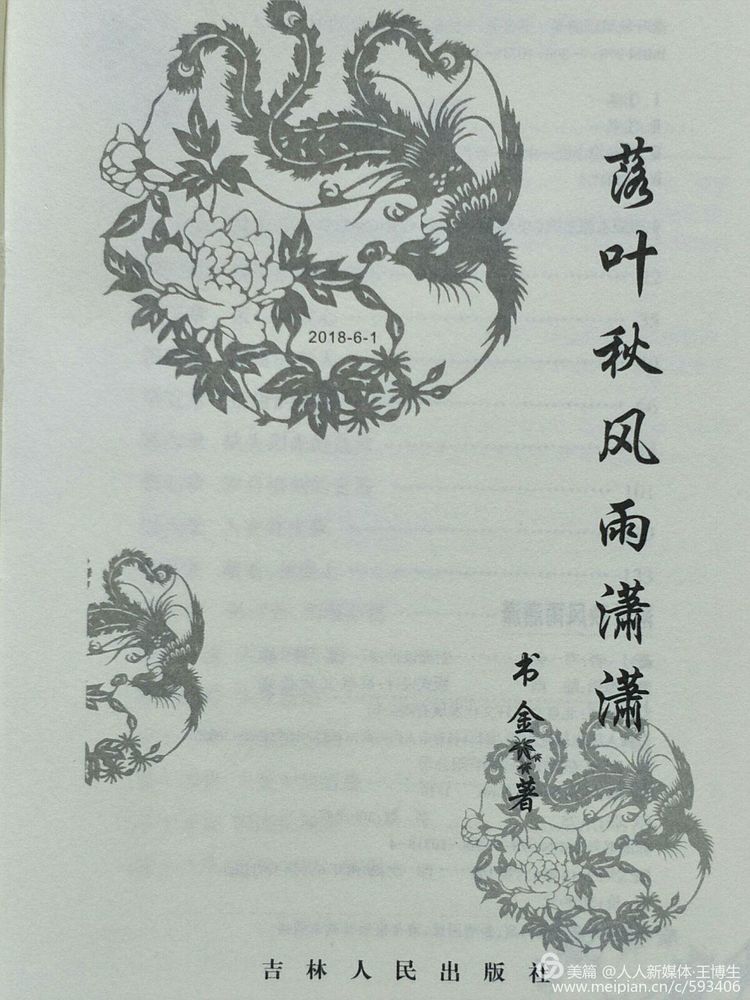 落叶秋风雨潇潇
书金著
2018-6-1
吉林人民出版社
美篇 @人人新媒体·王博生
www.meipian.cn/c/593406